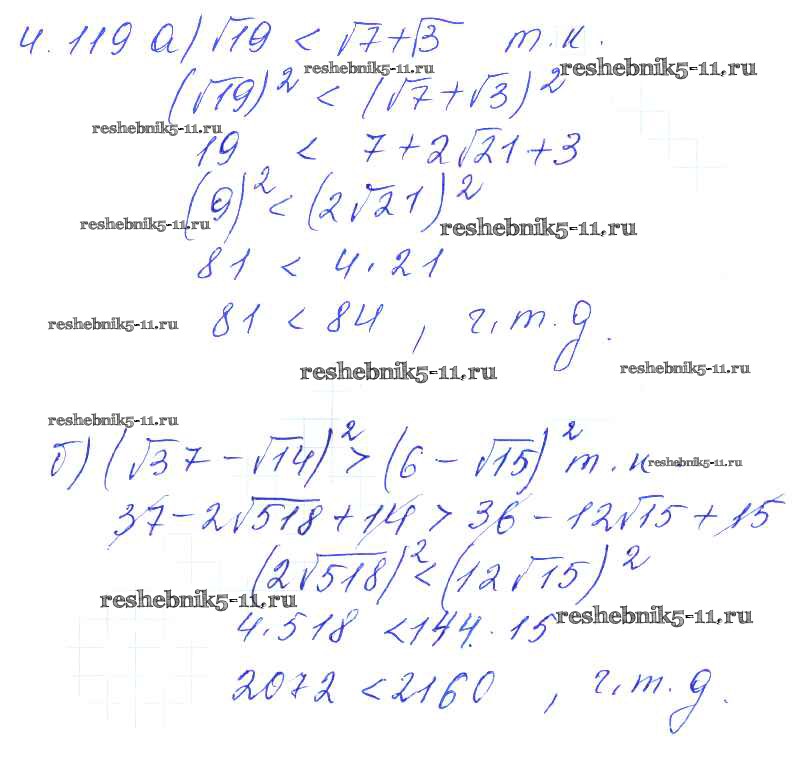 4.119 а) √19 < √7+√3 т.к.
reshebnik5-11.ru reshebnik5-11.ru
(√19)² < (√7+√3)²
reshebnik5-11.ru
19 < 7+2√21+3
(9)² < (2√21)²
reshebnik5-11.ru reshebnik5-11.ru
81 < 4·21
81 < 84, ч.т.д.
reshebnik5-11.ru
reshebnik5-11.ru reshebnik5-11.ru
reshebnik5-11.ru
б) (√37-√14)² > (6-√15)² т.к.
reshebnik5-11.ru
37-2√518+14 > 36-12√15+15
(2√518)² < (12√15)²
reshebnik5-11.ru
4·518 < 144·15
reshebnik5-11.ru
2072 < 2160, ч.т.д.